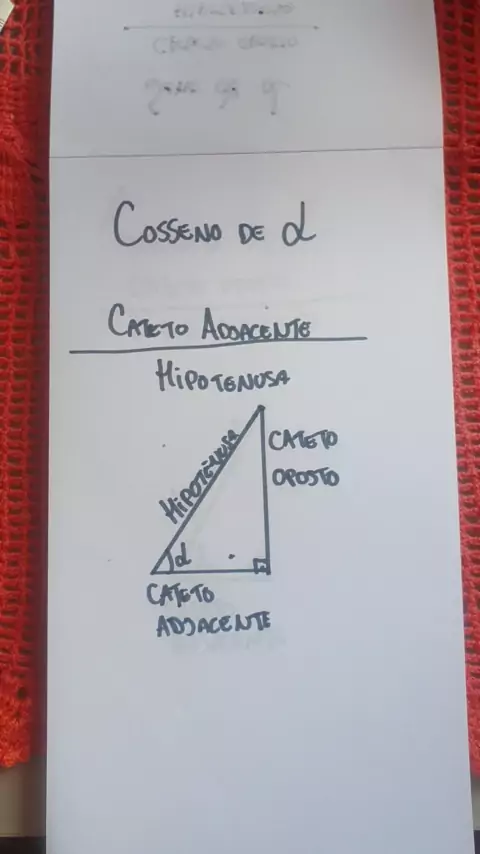 COSSENO DE α
CATETO ADJACENTE
HIPOTENUSA
HIPOTENUSA
CATETO
OPOSTO
α
CATETO
ADJACENTE